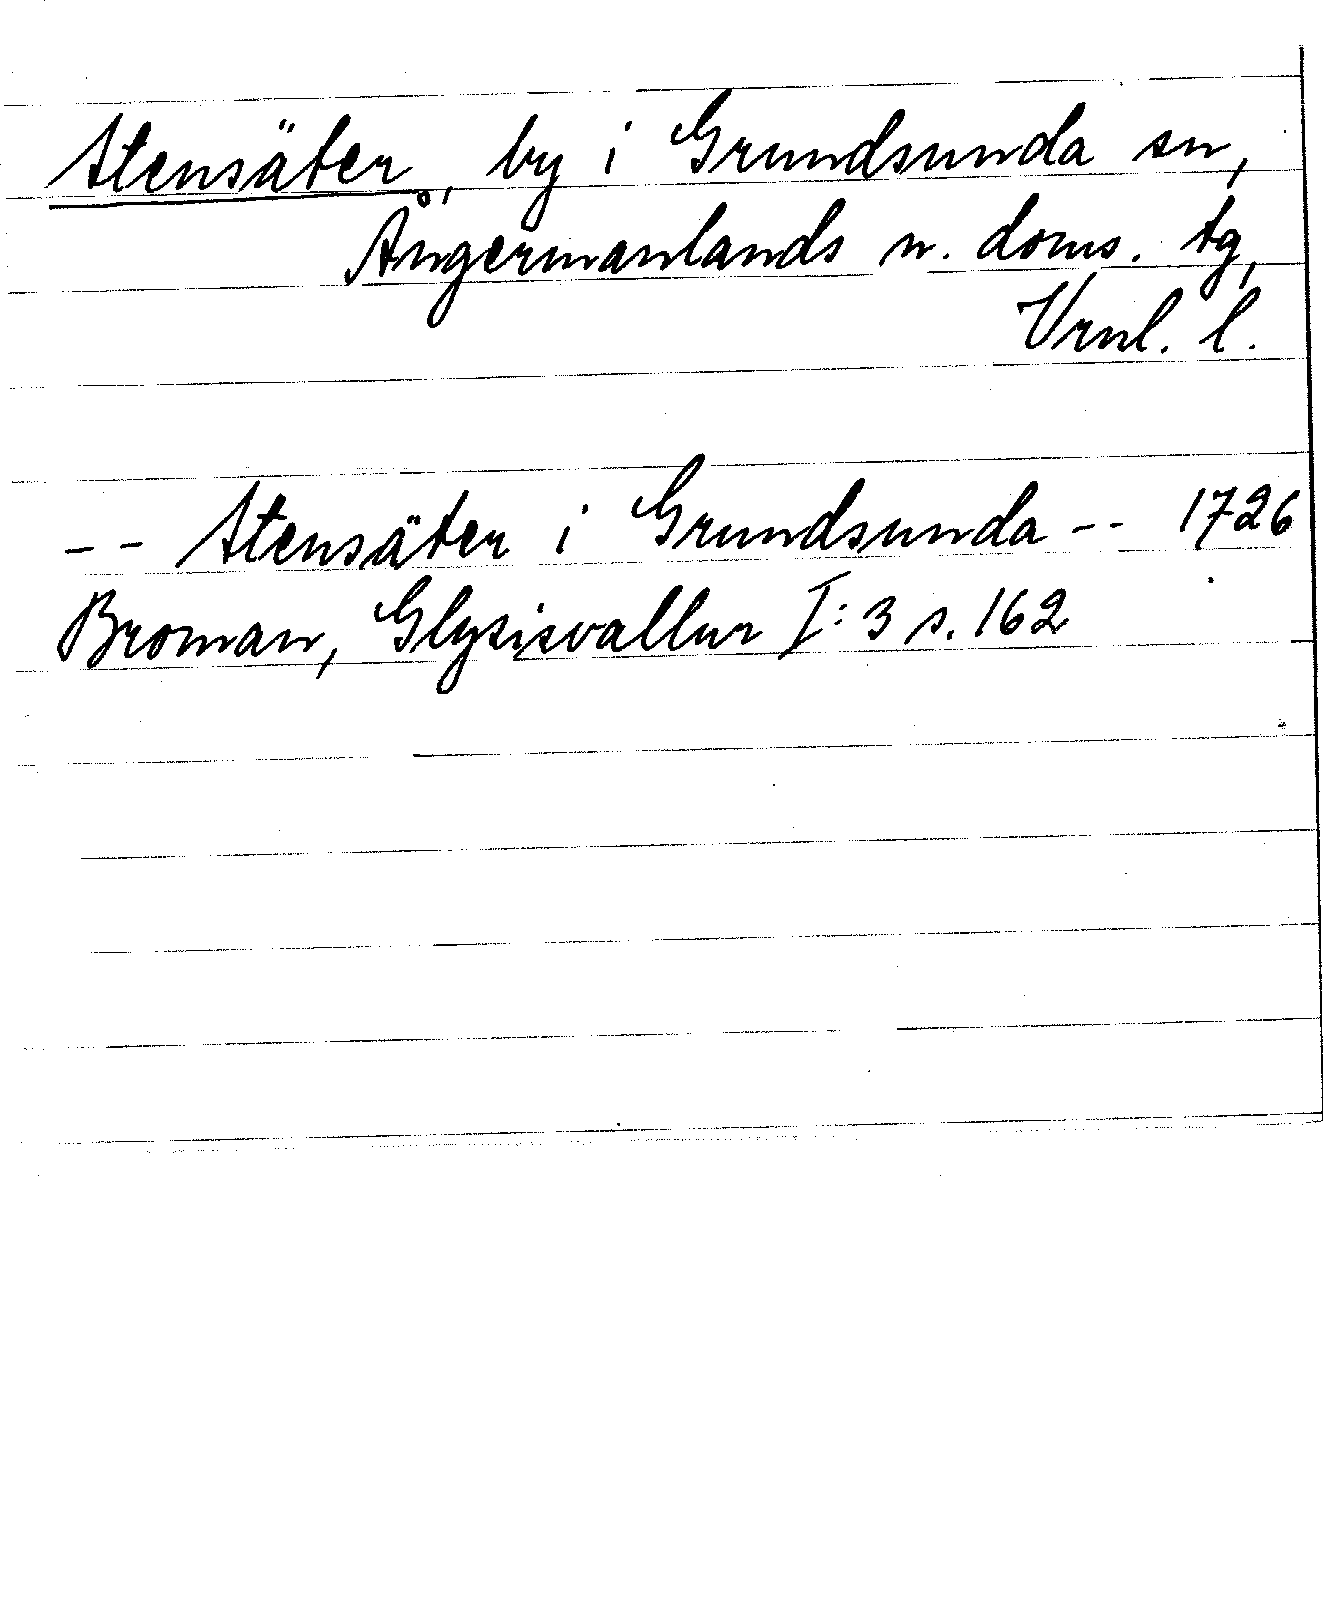 Stensäter, by i Grundsunda sn,
Ångermanlands n. doms. tg,
Vrnl. l.
-- Stensäter i Grundsunda -- 1726
Broman, Glysisvallur I:3 s. 162